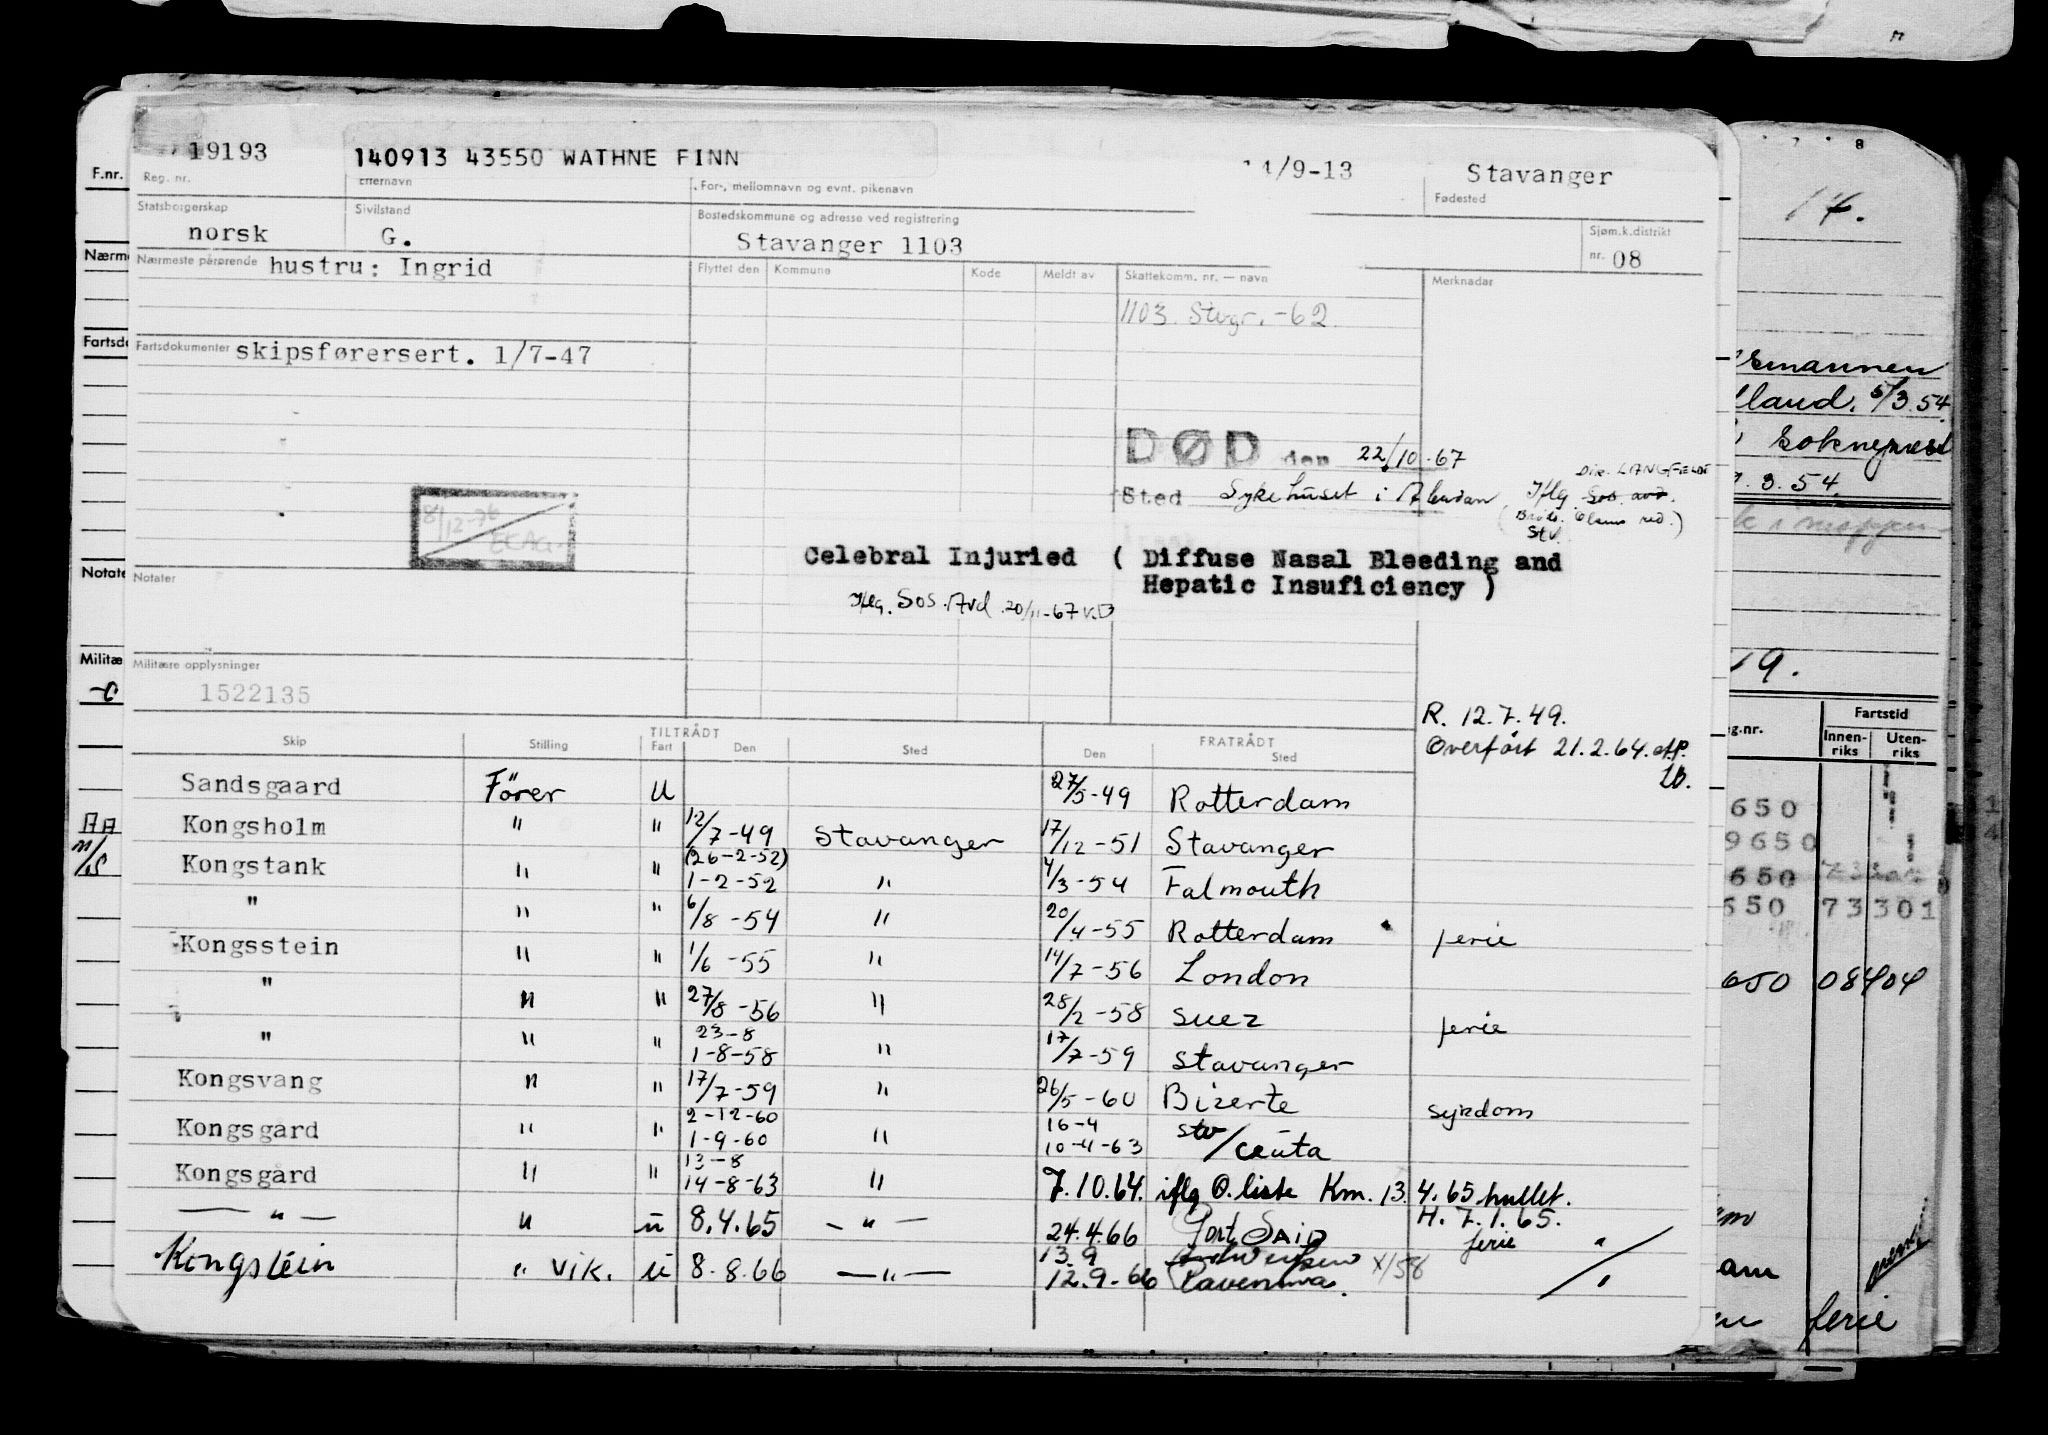 19193 140913 43550 WATHNE FINN 14/9-13 Stavanger
F.nr. Reg. nr. Etternavn For-, mellomnavn og evnt. pikenavn Fødested
Statsborgerskap Sivilstand Bostedskommune og adresse ved registrering Sjøm.k.distrikt
norsk G. Stavanger 1103 nr. 08
Nærmeste pårørende hustru: Ingrid Flyttet den Kommune Kode Meldt av Skattekomm. nr. — navn Merknader
1103 Stvgr. -62
Fartsdokumenter skipsførersert. 1/7-47
DØD den 22/10-67
Dir. LANGFELDT
Sted Sykehuset i Abadan Iflg Sos avd.
Stv.
Celebral Injuried ( Diffuse Nasal Bleeding and
Hepatic Insuficiency )
Notater
Iflg. Sos. Avd. 20/11-67 V.D
Militære opplysninger
1522135
R. 12.7.49.
Overført 21.2.64.
TILTRÅDT FRATRÅDT
Skip Stilling Fart Den Sted Den Sted
Sandsgaard Förer U 27/5-49 Rotterdam
Kongsholm " " 12/7-49 Stavanger 17/12-51 Stavanger
(26-2-52)
Kongstank " " 1-2-52 " 4/3-54 Falmouth
" " " 6/8-54 " 20/4-55 Rotterdam ferie
Kongsstein " " 1/6-55 " 14/7-56 London
" " " 27/8-56 " 28/2-58 Suez ferie
23-8
" " " 1-8-58 " 17/7-59 Stavanger
Kongsvang " " 17/7-59 " 26/5-60 Bizerte sykdom
2-12-60 16-4 Stv
Kongsgård " " 1-9-60 " 10-4-63 /Ceuta
13-8
Kongsgård " " 14-8-63 " 7.10.64. iflg O. liste Km. 13.4.65 hullet.
H. 7.1.65.
— " — " u 8.4.65 — " — 24.4.66 Port SAID ferie "
13.9 X/58
Kongstein " vik. u 8.8.66 — " — 12.9-66 Ravenna. "
F.nr.
Nærm
Fartsd
Notate
Militæ
8
14.
5/3.54
3.54.
19.
g.nr. Fartstid
Innen-riks Uten-riks
650
9650
650
650 73301
650 08404
ferie